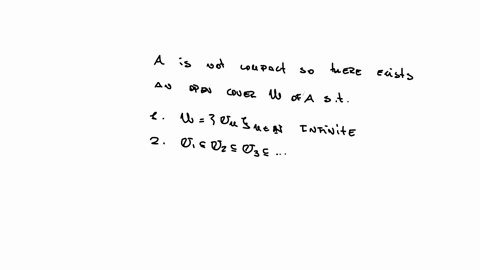 A is not compact so there exists
an open cover 𝒰 of A s.t.
1. 𝒰 = {U_n}_{n∈ℕ} INFINITE
2. U_1 ⊆ U_2 ⊆ U_3 ⊆ ...